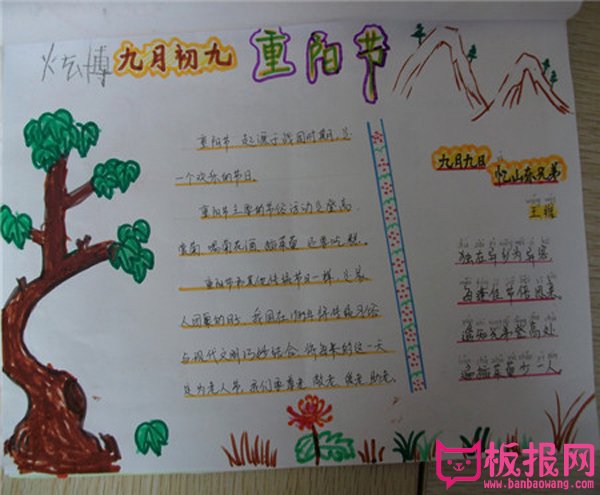 九月初九 重阳节
重阳节 起源于战国时期,是
一个欢乐的节日
重阳节主要的节俗活动是登高
赏菊 喝菊花酒 插茱萸 还要吃糕
重阳节和其他传统节日一样 是家
人团聚的日子 我国在1989年将传统习俗
与现代文明巧妙结合 将每年的这一天
定为老人节 我们要尊老 敬老 爱老 助老。
九月九日
忆山东兄弟
王维
独在异乡为异客
每逢佳节倍思亲。
遥知兄弟登高处
遍插茱萸少一人。
板报网
www.banbaowang.com